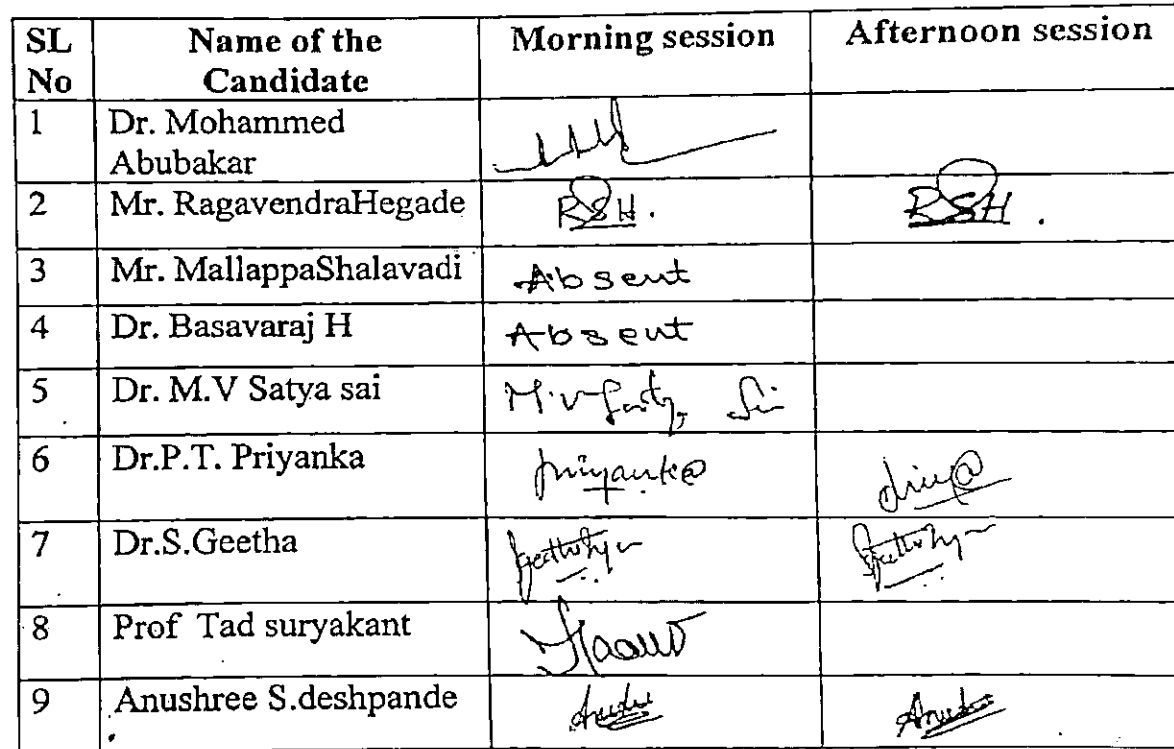 SL No Name of the Candidate Morning session Afternoon session
1 Dr. Mohammed Abubakar
2 Mr. RagavendraHegade RSH. RSH.
3 Mr. MallappaShalavadi Absent
4 Dr. Basavaraj H Absent
5 Dr. M.V Satya sai
6 Dr.P.T. Priyanka
7 Dr.S.Geetha
8 Prof Tad suryakant
9 Anushree S.deshpande